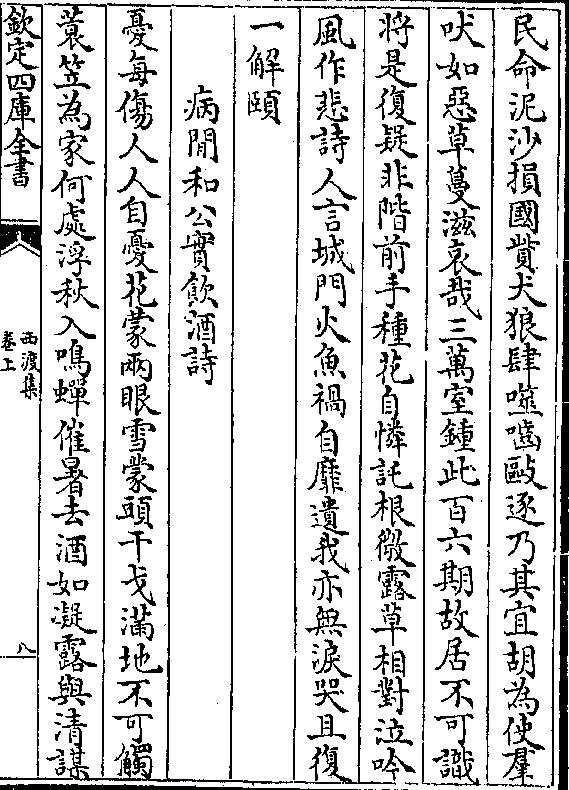 民命泥沙損國貲犬狼肆噬嚙毆逐乃其宜胡為使羣
吠如惡草蔓滋哀哉三萬室鍾此百六期故居不可識
將是復疑非階前手種花自憐託根微露草相對泣吟
風作悲詩人言城門火魚禍自靡遺我亦無淚哭且復
一解頤
病間和公實飲酒詩
憂每傷人人自憂花蒙兩眼雪蒙頭干戈滿地不可觸
蓑笠為家何處浮秋入鳴蟬催暑去酒如凝露與清謀
欽定四庫全書
西渡集
卷上
八